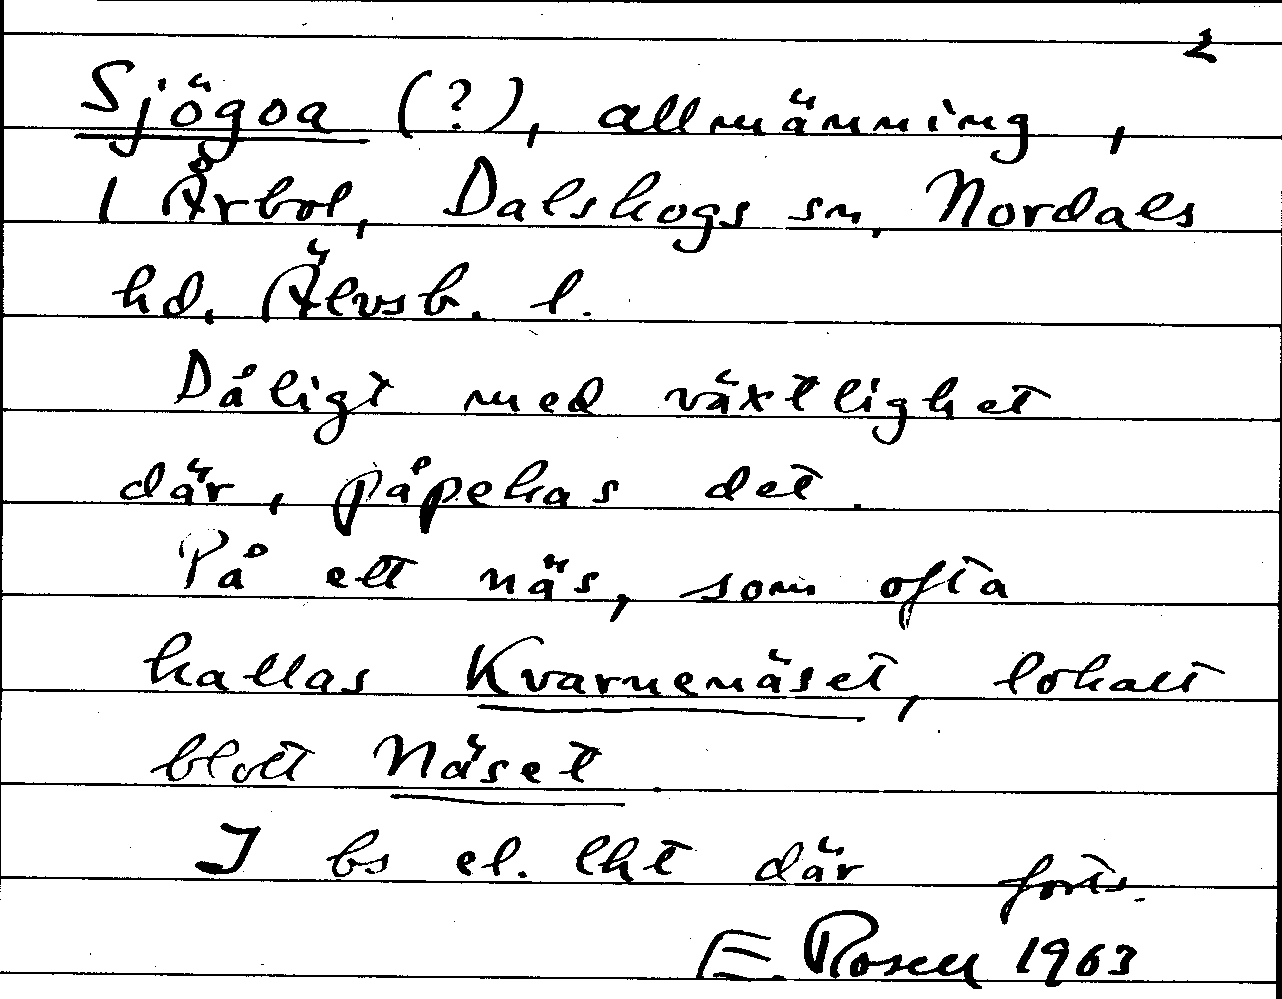 2
Sjögoa (?), allmänning,
i Årbol, Dalskogs sn, Nordals
hd, Älvsb. l.
Dåligt med växtlighet
där, påpekas det.
På ett näs, som ofta
kallas Kvarnenäset, lokalt
blott Näset.
I bs el. lkt där forts.
E. Rosell 1963